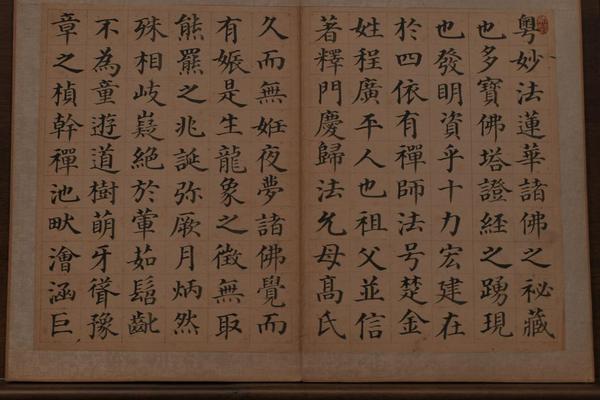 粵妙法蓮華諸佛之祕藏
也多寶佛塔證經之踴現
也發明資乎十力宏建在
於四依有禪師法号楚金
姓程廣平人也祖父並信
著釋門慶歸法允母髙氏
久而無姙夜夢諸佛覺而
有娠是生龍象之徵無取
熊羆之兆誕弥厥月炳然
殊相岐嶷絕於葷茹髫齔
不為童遊道樹萌牙聳豫
章之楨幹禪池畎澮涵巨